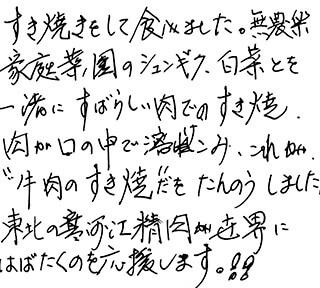 すき焼きをして食べました。無農薬
家庭菜園のシュンギク、白菜とを
一緒にすばらしい肉でのすき焼、
肉が口の中で溶けこみ、これが、
"牛肉のすき焼"だを たんのうしました
東北の寒河江精肉が世界に
はばたくのを応援します。!!